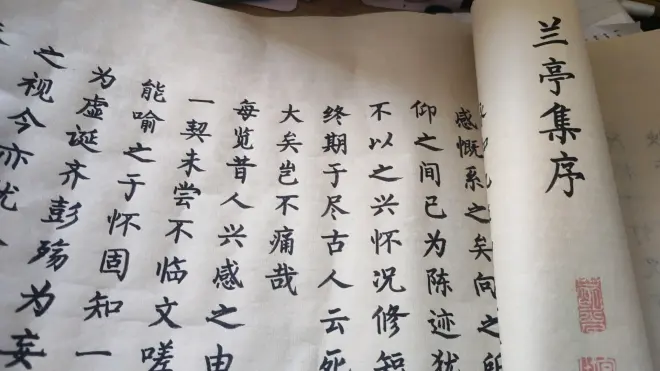 兰亭集序
感慨系之矣向之所
仰之间已为陈迹犹
不以之兴怀况修短
终期于尽古人云死
大矣岂不痛哉
每览昔人兴感之由
一契未尝不临文嗟
能喻之于怀固知一
为虚诞齐彭殇为妄
之视今亦犹今